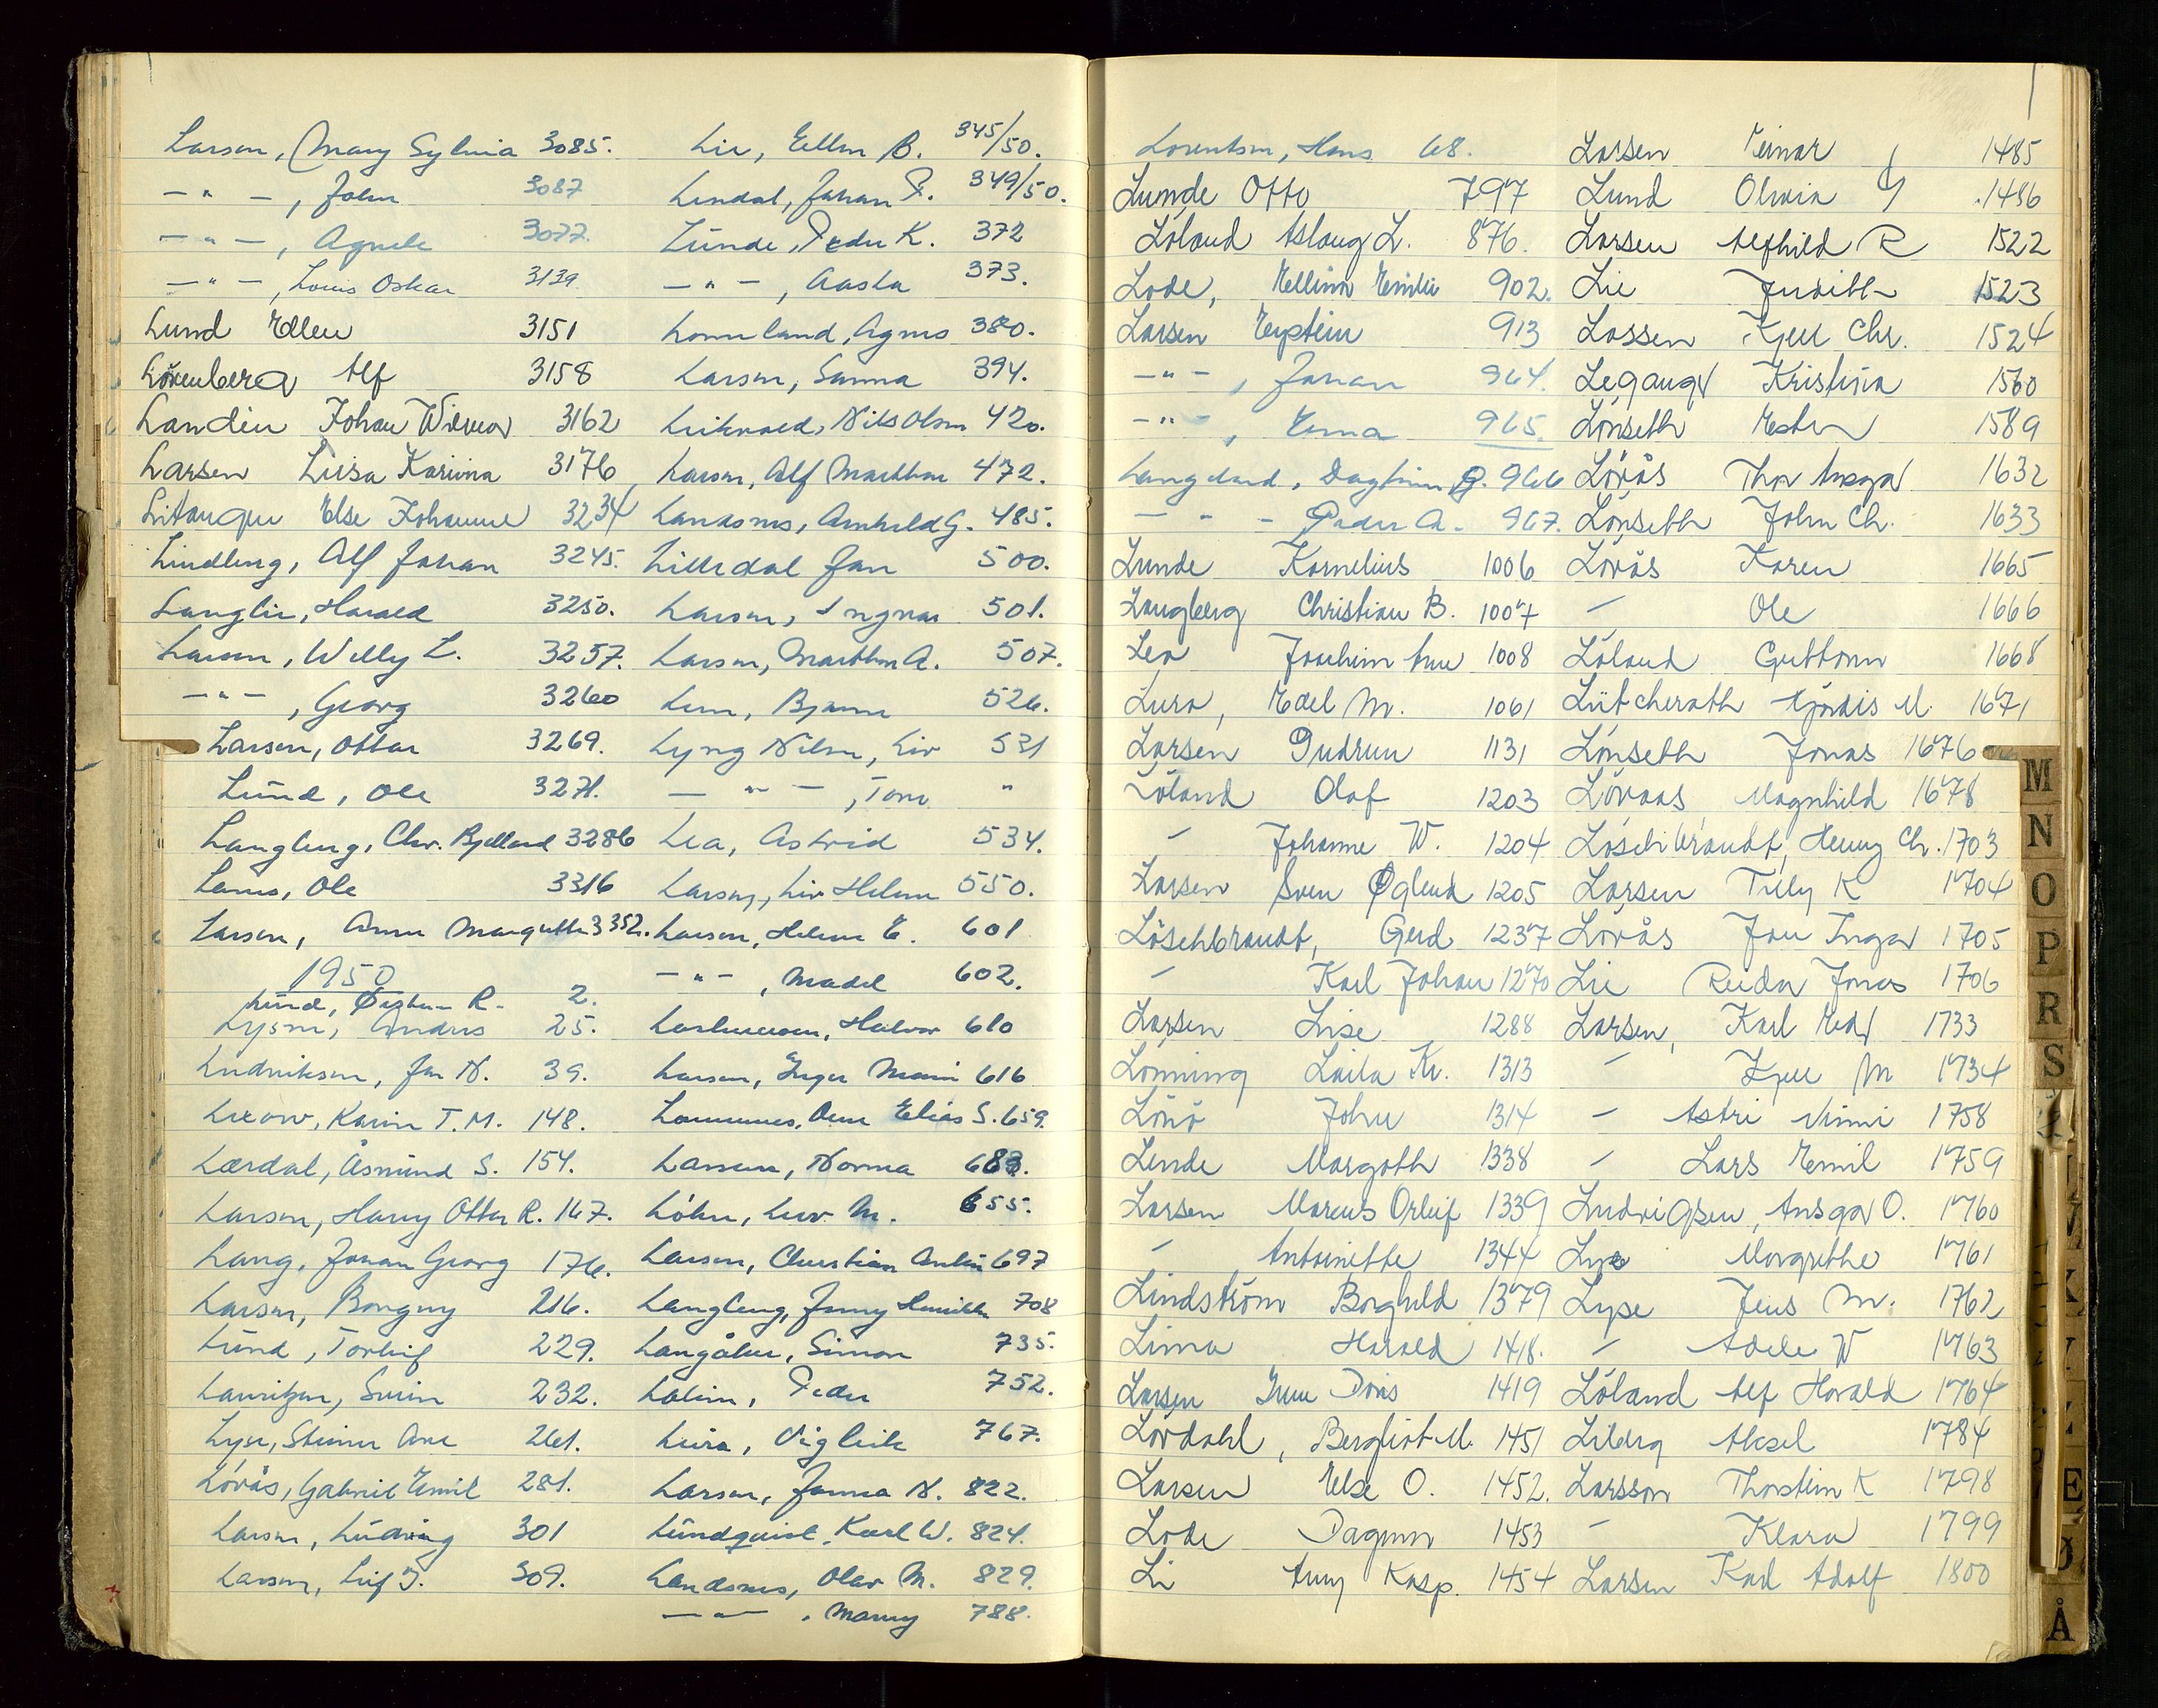 Larsen, Mary Sylvia 3085.
— " —, John 3087
— " —, Agnete 3077.
— " —, Louis Oskar 3139
Lund Ellen 3151
Lövenberg Alf 3158
Landin Johan Wilmar 3162
Larsen Luisa Karina 3176
Litangen Else Johanne 3234
Lindberg, Alf Johan 3245.
Langlie, Harald 3250.
Larsen, Willy L. 3257.
— " —, Georg 3260
Larsen, Ottar 3269.
Lund, Ole 3271.
Langberg, Chr. Bjelland 3286
Larns, Ole 3316
Larsen, Anna Margrethe 3352.
1950
Lund, Øistein R. 2.
Lysne, Anders 25.
Ludviksen, Jan N. 39.
Lexow, Karin T. M. 148.
Lærdal, Åsmund S. 154.
Larsen, Harry Ottar R. 167.
Lang, Johan Georg 176.
Larsen, Borgny 216.
Lund, Torleif 229.
Lauritzen, Svein 232.
Lyse, Steinar Arne 261.
Lövås, Gabriel Emil 281.
Larsen, Ludvig 301
Larsen, Leif J. 309.
Lie, Ellen B. 345/50.
Lendal, Johan F. 349/50.
Lunde, Peder K. 372
— " —, Aasta 373.
Lomeland, Agnes 380.
Larsen, Sanna 394.
Leikvold, Nils Olsen 420.
Larsen, Alf Marthon 472.
Landsnes, Arnhild G. 485.
Lilledal Jan 500.
Larsen, Ingvar 501.
Larsen, Marthon A. 507.
Lem, Bjarne 526.
Lyng Nilsen, Liv 531
— " —, Tom "
Lea, Astrid 534.
Larsen, Liv Helene 550.
Larsen, Helene E. 601
— " —, Madel 602.
Halvor 610
Larsen, Inger Marie 616
Elias S. 659.
Larsen, Norma 683.
Löhn, Liv M. 655.
Larsen, Christian Anton 697
Langberg, Jenny Henrikke 708
Langåker, Simon 735.
Peder 752.
Lura, Vigleik 767.
Larsen, Janna N. 822.
Lundquist, Karl W. 824.
Landsnes, Olav M. 829.
— " —, Marny 788.
Lorentsen, Hans 68.
Lunde Otto 797
Löland Aslaug L. 876.
Lode, Elline Emilie 902.
Larsen Eystein 913
— " —, Johan 964.
— " —, Erna 965.
Langeland, Dagfinn G. 966
— " — Peder A. 967.
Lunde Kornelius 1006
Langberg Christian B. 1007
Lea Joachim Arne 1008
Lura, Edel M. 1061
Larsen Gudrun 1131
Löland Olaf 1203
" Johanne W. 1204
Larsen Sven Øglend 1205
Löschbrandt, Gerd 1237
" Karl Johan 1270
Larsen Lise 1288
Lönning Laila Kr. 1313
Lönö John 1314
Lende Margoth 1338
Larsen Marcus Orleif 1339
" Antoinette 1344
Lindström Borghild 1379
Lima Harald 1418.
Larsen Doris 1419
Lövdahl, Bergliot M. 1451
Larsen Else O. 1452.
Lode Dagmar 1453
Li Amy Kasp. 1454
Larsen Einar 1485
Lund Olivia 1486
Larsen Alfhild R 1522
Lie Judith 1523
Lassen Kjell Chr. 1524
Legangd Kristina 1560
Lönseth Ester 1589
Lövås Thor Ansgar 1632
Lönseth John Ch. 1633
Lövås Karen 1665
" Ole 1666
Löland Guttorm 1668
Lütcherath Hjördis M. 1671
Lönseth Jonas 1676
Lövaas Magnhild 1678
Löschbrandt, Henny Ch. 1703
Larsen Tilly K 1704
Lövås Jan Ingar 1705
Lie Reidar Jonas 1706
Larsen, Karl Edv 1733
" Kjell M 1734
" Astri Minni 1758
" Lars Emil 1759
Ludvigsen, Ansgar O. 1760
Lyse Margrethe 1761
Lyse Jens M. 1762
" Adele W 1763
Löland Alf Harald 1764
Aksel 1784
Larsson Thorstein K 1798
" Klara 1799
Larsen Karl Adolf 1800
M
N
O
P
R
S
Æ
Ø
Å